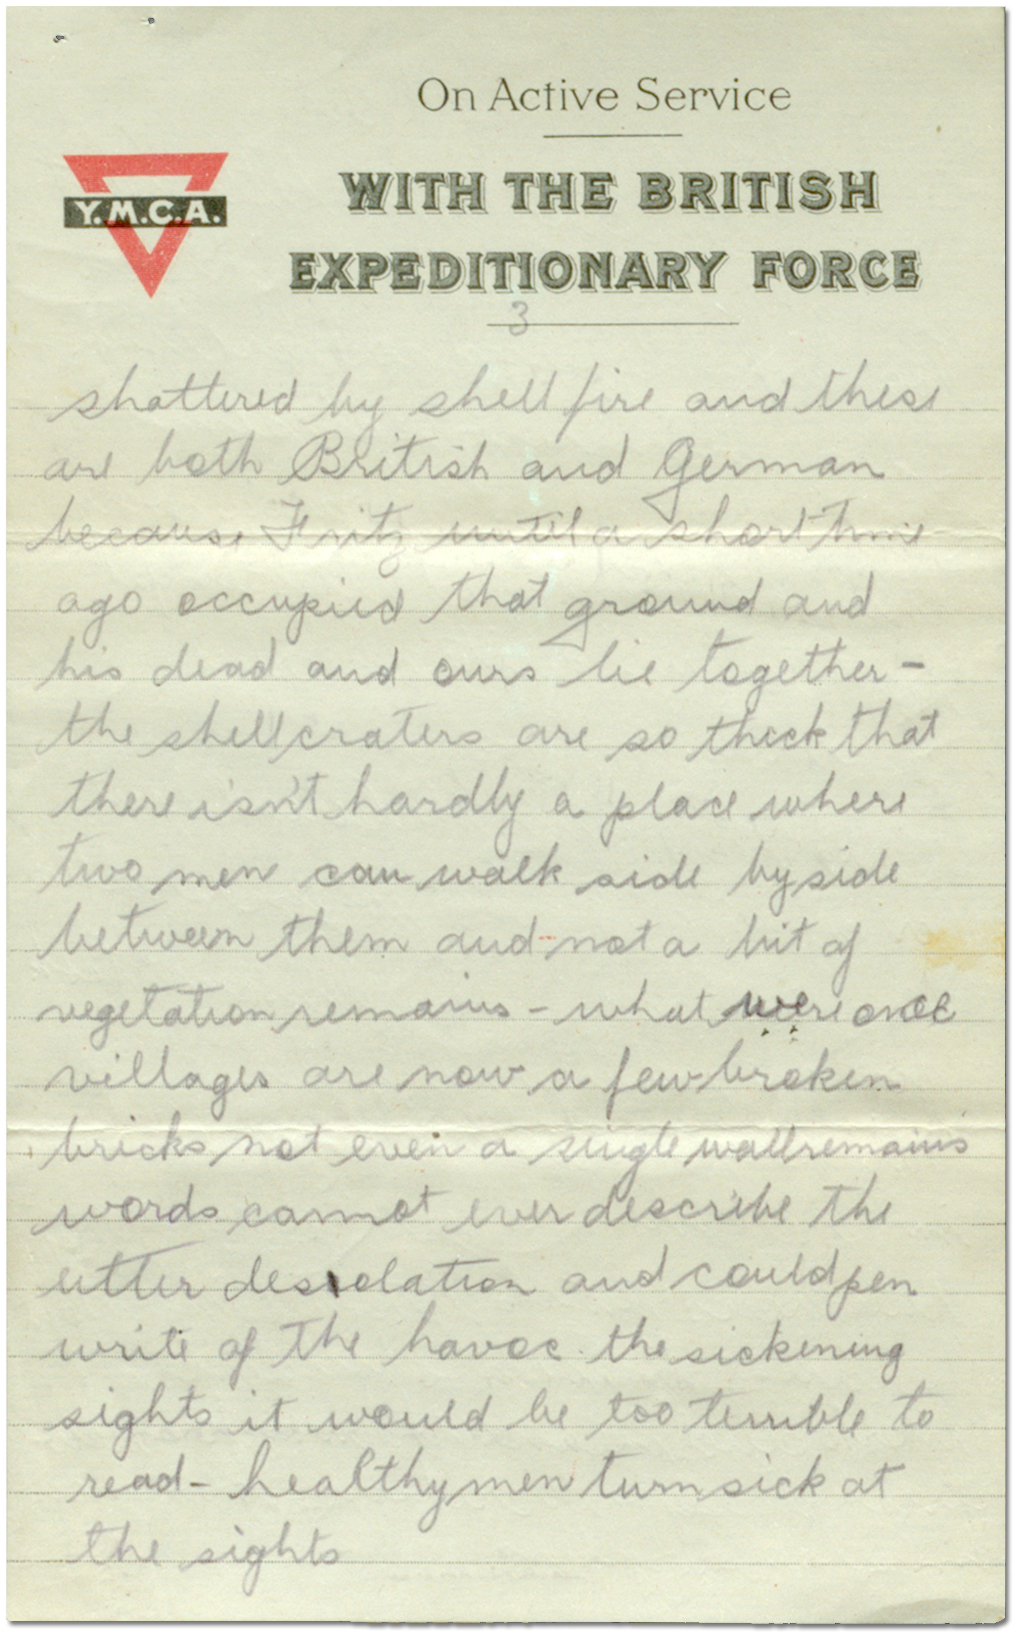 On Active Service
Y.M.C.A.
WITH THE BRITISH
EXPEDITIONARY FORCE
3
shattered by shell fire and these
are both British and German
because Fritz until a short time
ago occupied that ground and
his dead and ours lie together -
the shell craters are so thick that
there isn't hardly a place where
two men can walk side by side
between them and not a bit of
vegetation remains - what were once
villages are now a few broken
bricks not even a single wall remains
words cannot ever describe the
utter desolation and could pen
write of the havoc the sickening
sights it would be too terrible to
read - healthy men turn sick at
the sights